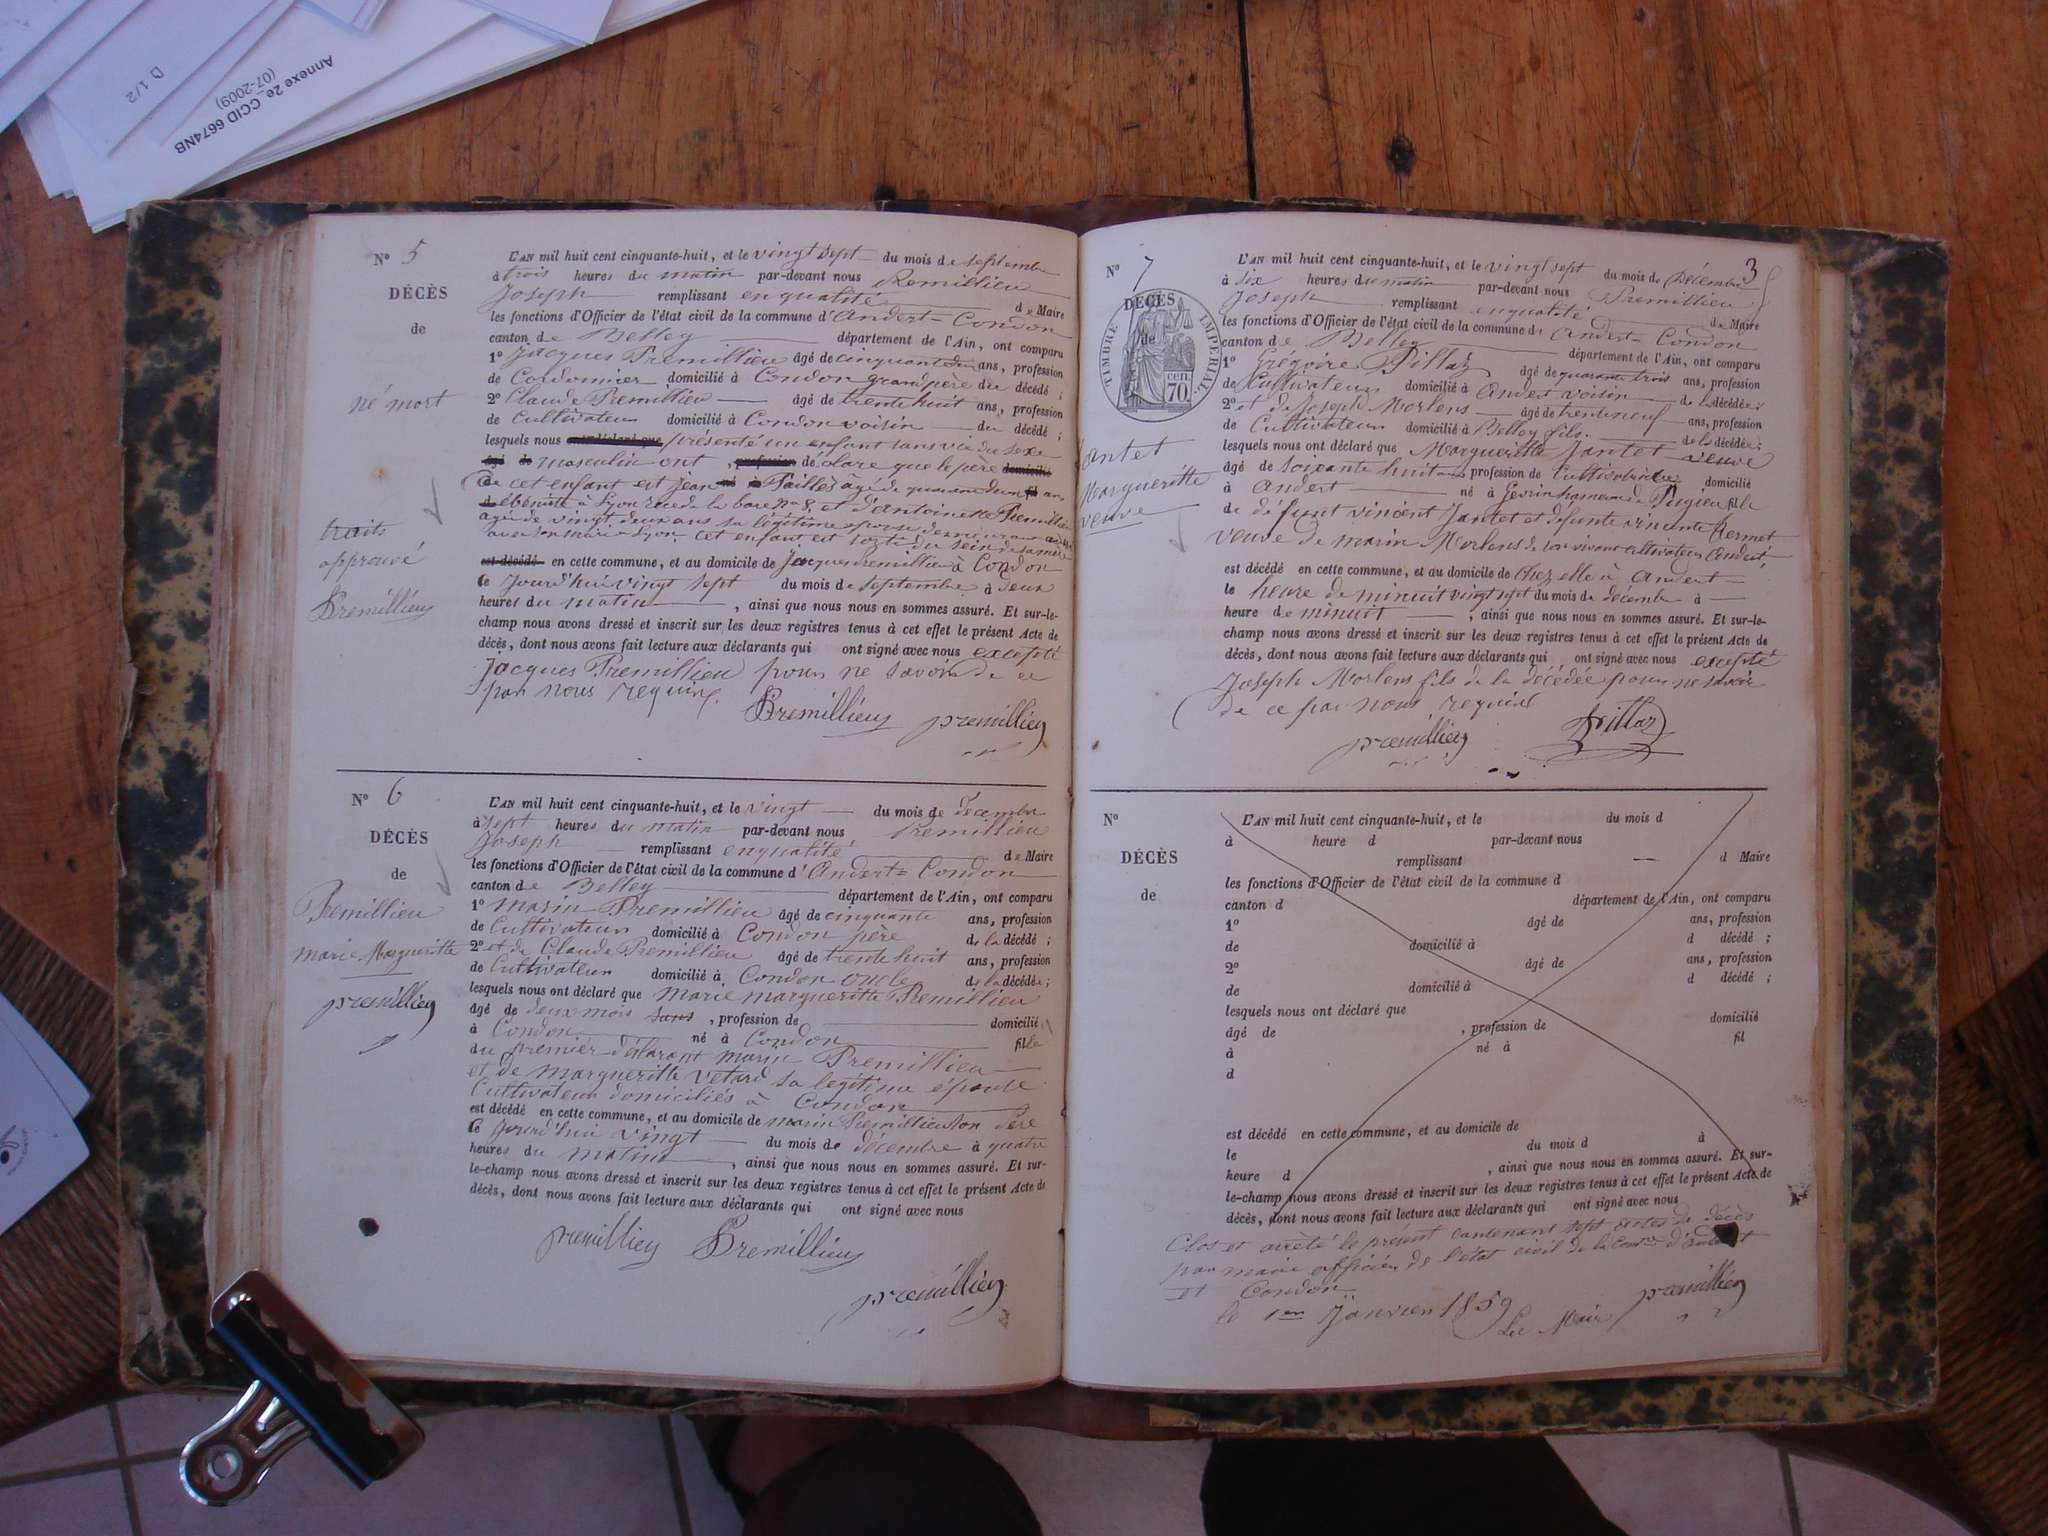 D 1/2
Annexe 2e_CCID 6674NB
(07-2009)
N° 5
DÉCÈS
de
né mort
traits
approuvé
Premillieu
L'AN mil huit cent cinquante-huit, et le vingt sept du mois de septembre
à trois heures du matin par-devant nous Premillieu
Joseph remplissant en qualité de Maire
les fonctions d'Officier de l'état civil de la commune d'Andert-Condon
canton de Belley département de l'Ain, ont comparu
1° Jacques Premillieu âgé de cinquante ans, profession
de Cordonnier domicilié à Condon grand père du décédé ;
2° Claude Premillieu âgé de trente huit ans, profession
de Cultivateur domicilié à Condon voisin du décédé ;
lesquels nous ont déclaré que présenté un enfant sans vie du sexe
âgé de masculin ont , profession déclare que le père domicilié
de cet enfant est Jean né à Taillès agé de quarante un fil ans
d ébéniste à Lyon rue de la n° 8, et d'Antoinette Premillieu
agée de vingt deux ans sa légitime epouse demeurant
avec son mari a Lyon cet enfant est sorti du sein de sa mère
est décédé en cette commune, et au domicile de Jacques Premillieu à Condon
le Jourd'hui vingt sept du mois de septembre à deux
heures du matin , ainsi que nous nous en sommes assuré. Et sur-le-
champ nous avons dressé et inscrit sur les deux registres tenus à cet effet le présent Acte de
décès, dont nous avons fait lecture aux déclarants qui ont signé avec nous excepté
Jacques Premillieu pour ne savoir de ce
par nous requis.
Premillieu premillieu
N° 6
DÉCÈS
de
Premillieu
marie Margueritte
premillieu
L'AN mil huit cent cinquante-huit, et le vingt du mois de décembre
à sept heures du matin par-devant nous Premillieu
Joseph remplissant en qualité de Maire
les fonctions d'Officier de l'état civil de la commune d'Andert-Condon
canton de Belley département de l'Ain, ont comparu
1° marin Premillieu âgé de cinquante ans, profession
de Cultivateur domicilié à Condon père de la décédé ;
2° et de Claude Premillieu âgé de trente huit ans, profession
de Cultivateur domicilié à Condon oncle de la décédée ;
lesquels nous ont déclaré que Marie margueritte Premillieu
âgé de deux mois sans , profession de domicilié
à Condon né à Condon fille
du premier déclarant marin Premillieu
et de margueritte Vetard sa légitime épouse
Cultivateur domiciliés à Condon
est décédé en cette commune, et au domicile de marin Premillieu son père
le Jourd'hui vingt du mois de décembre à quatre
heures du matin , ainsi que nous nous en sommes assuré. Et sur-
le-champ nous avons dressé et inscrit sur les deux registres tenus à cet effet le présent Acte de
décès, dont nous avons fait lecture aux déclarants qui ont signé avec nous
premillieu Premillieu
premillieu
3
N° 7
DÉCÈS
de
TIMBRE IMPERIAL
70 cen.
Jantet
Margueritte
veuve
L'AN mil huit cent cinquante-huit, et le vingt sept du mois de Décembre
à six heures du matin par-devant nous Premillieu
Joseph remplissant en qualité de Maire
les fonctions d'Officier de l'état civil de la commune d' Andert-Condon
canton de Belley département de l'Ain, ont comparu
1° Grégoire Pillaz âgé de quarante trois ans, profession
de Cultivateur domicilié à Andert voisin de la décédée ;
2° et de Joseph Morlens âgé de trente neuf ans, profession
de Cultivateur domicilié à Belley fils de la décédée ;
lesquels nous ont déclaré que Margueritte Jantet veuve
âgé de soixante huit ans profession de Cultivatrice domicilié
à Andert né à Gevrin hameau de Pugieu fille
de défunt vincent Jantet et défunte vincente hermet
veuve de marin Morlens de son vivant cultivateur Andert,
est décédé en cette commune, et au domicile de chez elle à Andert
le heure de minuit vingt sept du mois de decembre à
heure de minuit , ainsi que nous nous en sommes assuré. Et sur-le-
champ nous avons dressé et inscrit sur les deux registres tenus à cet effet le présent Acte de
décès, dont nous avons fait lecture aux déclarants qui ont signé avec nous excepté
Joseph Morlens fils de la décédée pour ne savoir
de ce par nous requis
premillieu Pillaz
N°
DÉCÈS
de
L'AN mil huit cent cinquante-huit, et le du mois d
à heure d par-devant nous
remplissant d Maire
les fonctions d'Officier de l'état civil de la commune d
canton d département de l'Ain, ont comparu
1° âgé de ans, profession
de domicilié à d décédé ;
2° âgé de ans, profession
de domicilié à d décédé ;
lesquels nous ont déclaré que
âgé de , profession de domicilié
à né à fil
d
est décédé en cette commune, et au domicile de
le du mois d à
heure d , ainsi que nous nous en sommes assuré. Et sur-
le-champ nous avons dressé et inscrit sur les deux registres tenus à cet effet le présent Acte de
décès, dont nous avons fait lecture aux déclarants qui ont signé avec nous
Clos et arrêté le présent contenant sept actes de décès
par maire officier de l'état civil de la Com.ne d'andert
et Condon
le 1er Janvier 1859
Le Maire premillieu